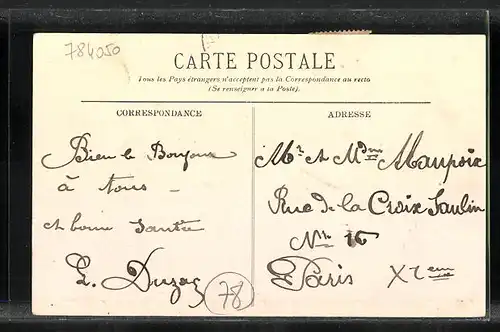 784050
CARTE POSTALE
Tous les Pays étrangers n'acceptent pas la Correspondance au recto
(Se renseigner à la Poste).
CORRESPONDANCE
Bien le Bonjour
à tous
et bonne santée
78
ADRESSE
Mr et Mdme Maupoix
Rue de la Croix Saulin
No 16
Paris XIem